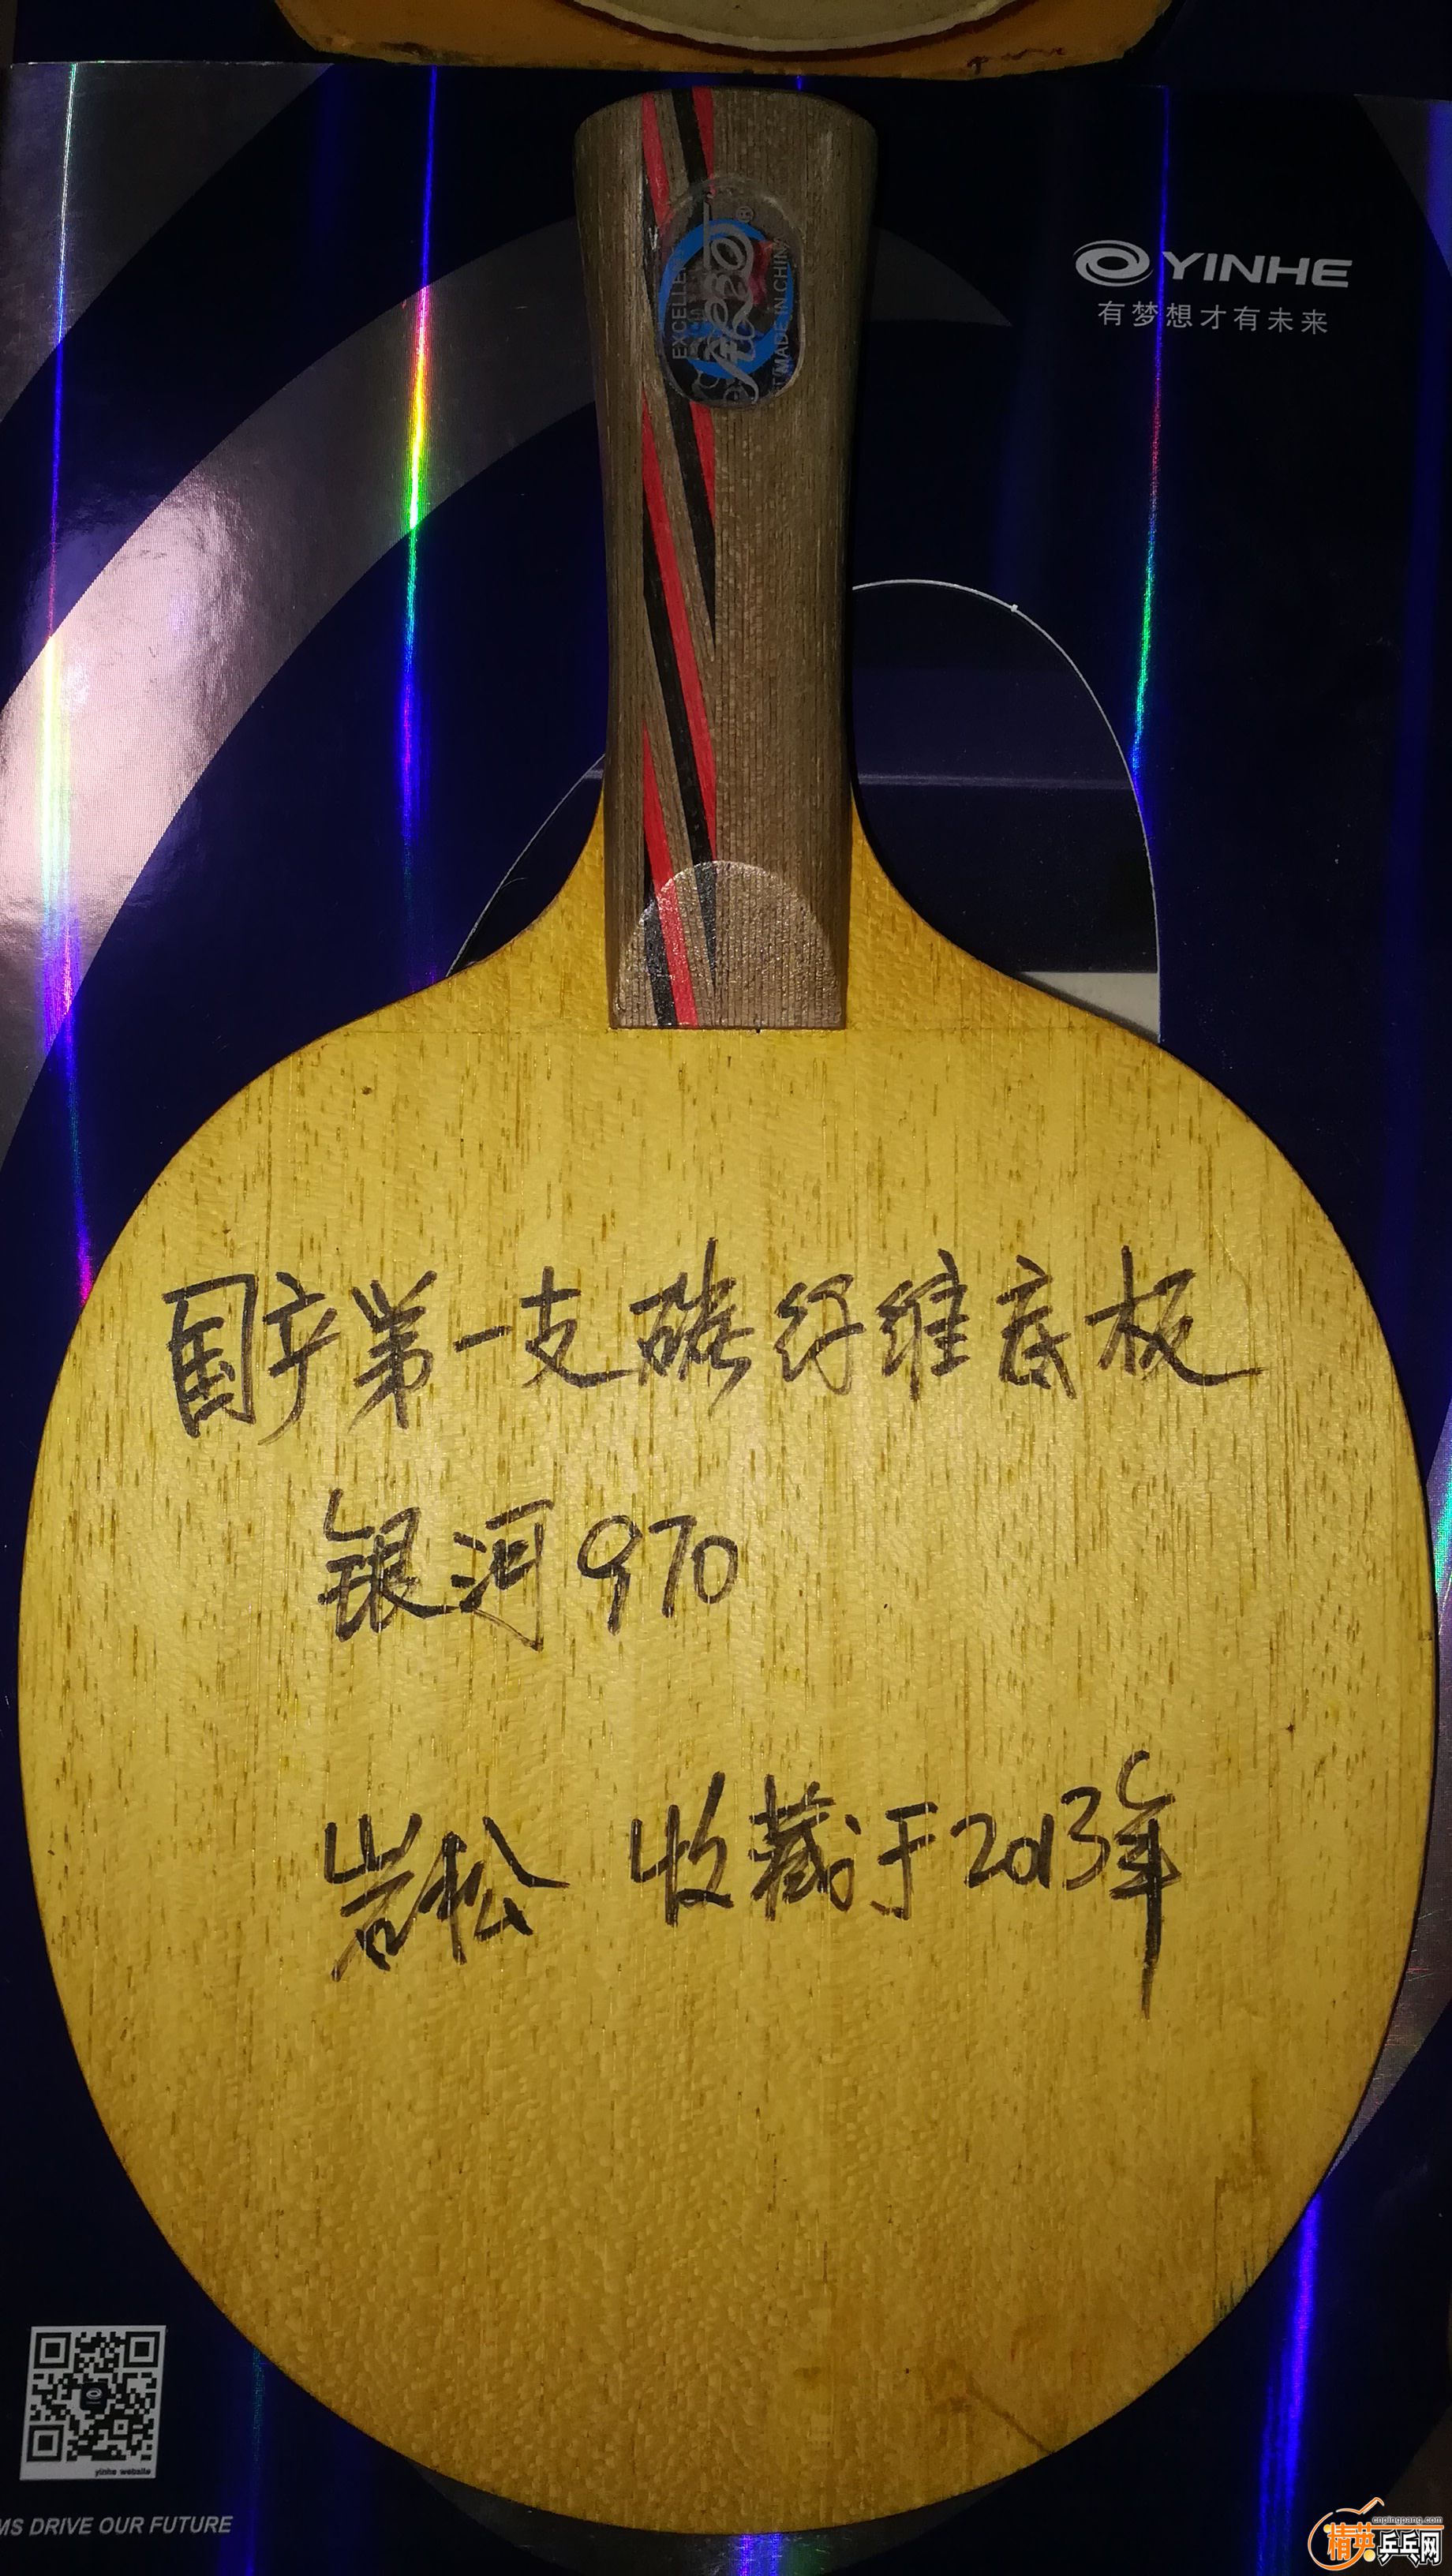 EXCELLEN
MADE IN CHIN
YINHE
有梦想才有未来
国产第一支碳纤维底板
银河970
岩松 收藏于2013年
yinhe website
MS DRIVE OUR FUTURE
cnpingpang.com
精英乒乓网